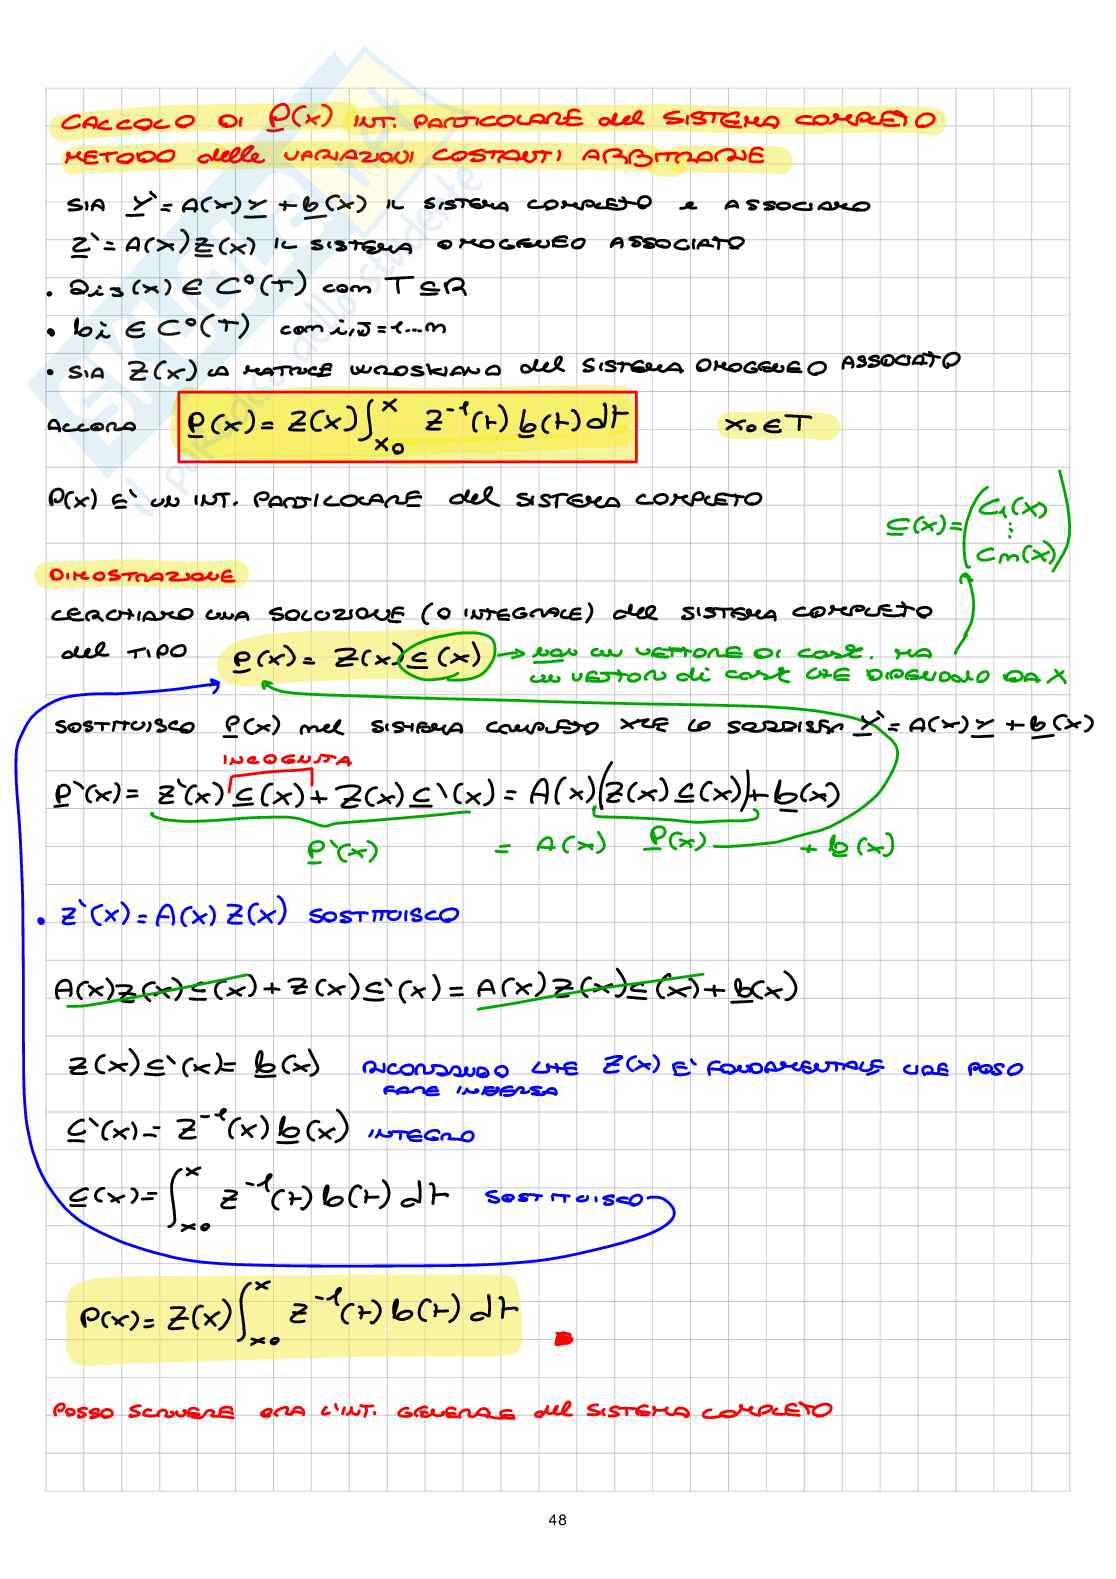 CALCOLO DI P(x) INT. PARTICOLARE del SISTEMA COMPLETO
METODO delle VARIAZIONI COSTANTI ARBITRARIE
SIA Y' = A(x) Y + b(x) IL SISTEMA COMPLETO e ASSOCIAMO
Z' = A(x) Z(x) IL SISTEMA OMOGENEO ASSOCIATO
• aij(x) ∈ C°(T) con T ⊆ R
• bi ∈ C°(T) con i,J = 1...n
• SIA Z(x) LA MATRICE WROSKIANA del SISTEMA OMOGENEO ASSOCIATO
ALLORA P(x) = Z(x) ∫_{x0}^{x} Z⁻¹(t) b(t) dt x0 ∈ T
P(x) E' UN INT. PARTICOLARE del SISTEMA COMPLETO
C(x) = (C1(x) ⋮ Cn(x))
DIMOSTRAZIONE
CERCHIAMO UNA SOLUZIONE (O INTEGRALE) del SISTEMA COMPLETO
del TIPO P(x) = Z(x) C(x) → NON UN VETTORE DI COST. MA
UN VETTORI di COST CHE DIPENDONO DA X
SOSTITUISCO P(x) nel SISTEMA COMPLETO XCE LO SODDISFA Y' = A(x) Y + b(x)
INCOGNITA
P'(x) = Z'(x) C(x) + Z(x) C'(x) = A(x)(Z(x) C(x)) + b(x)
P'(x) = A(x) P(x) + b(x)
• Z'(x) = A(x) Z(x) SOSTITUISCO
A(x) Z(x) C(x) + Z(x) C'(x) = A(x) Z(x) C(x) + b(x)
Z(x) C'(x) = b(x) RICORDANDO CHE Z(x) E' FONDAMENTALE CHE POSO
FARE INVERSA
C'(x) = Z⁻¹(x) b(x) INTEGRO
C(x) = ∫_{x0}^{x} Z⁻¹(t) b(t) dt SOSTITUISCO
P(x) = Z(x) ∫_{x0}^{x} Z⁻¹(t) b(t) dt
POSSO SCRIVERE ORA L'INT. GENERALE del SISTEMA COMPLETO
48